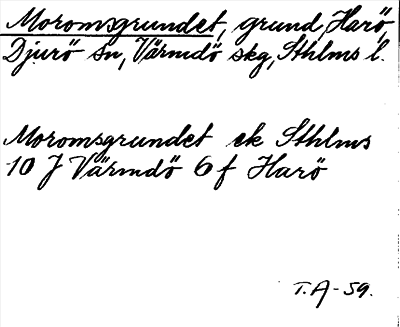 Moromsgrundet, grund, Harö,
Djurö sn, Värmdö skg, Sthlms l.
Moromsgrundet ek Sthlms
10 J Värmdö 6 f Harö
T.A-59.